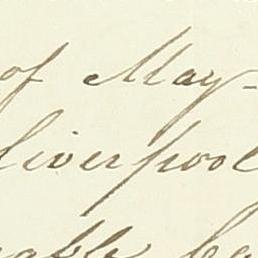 of May-
Liverpool